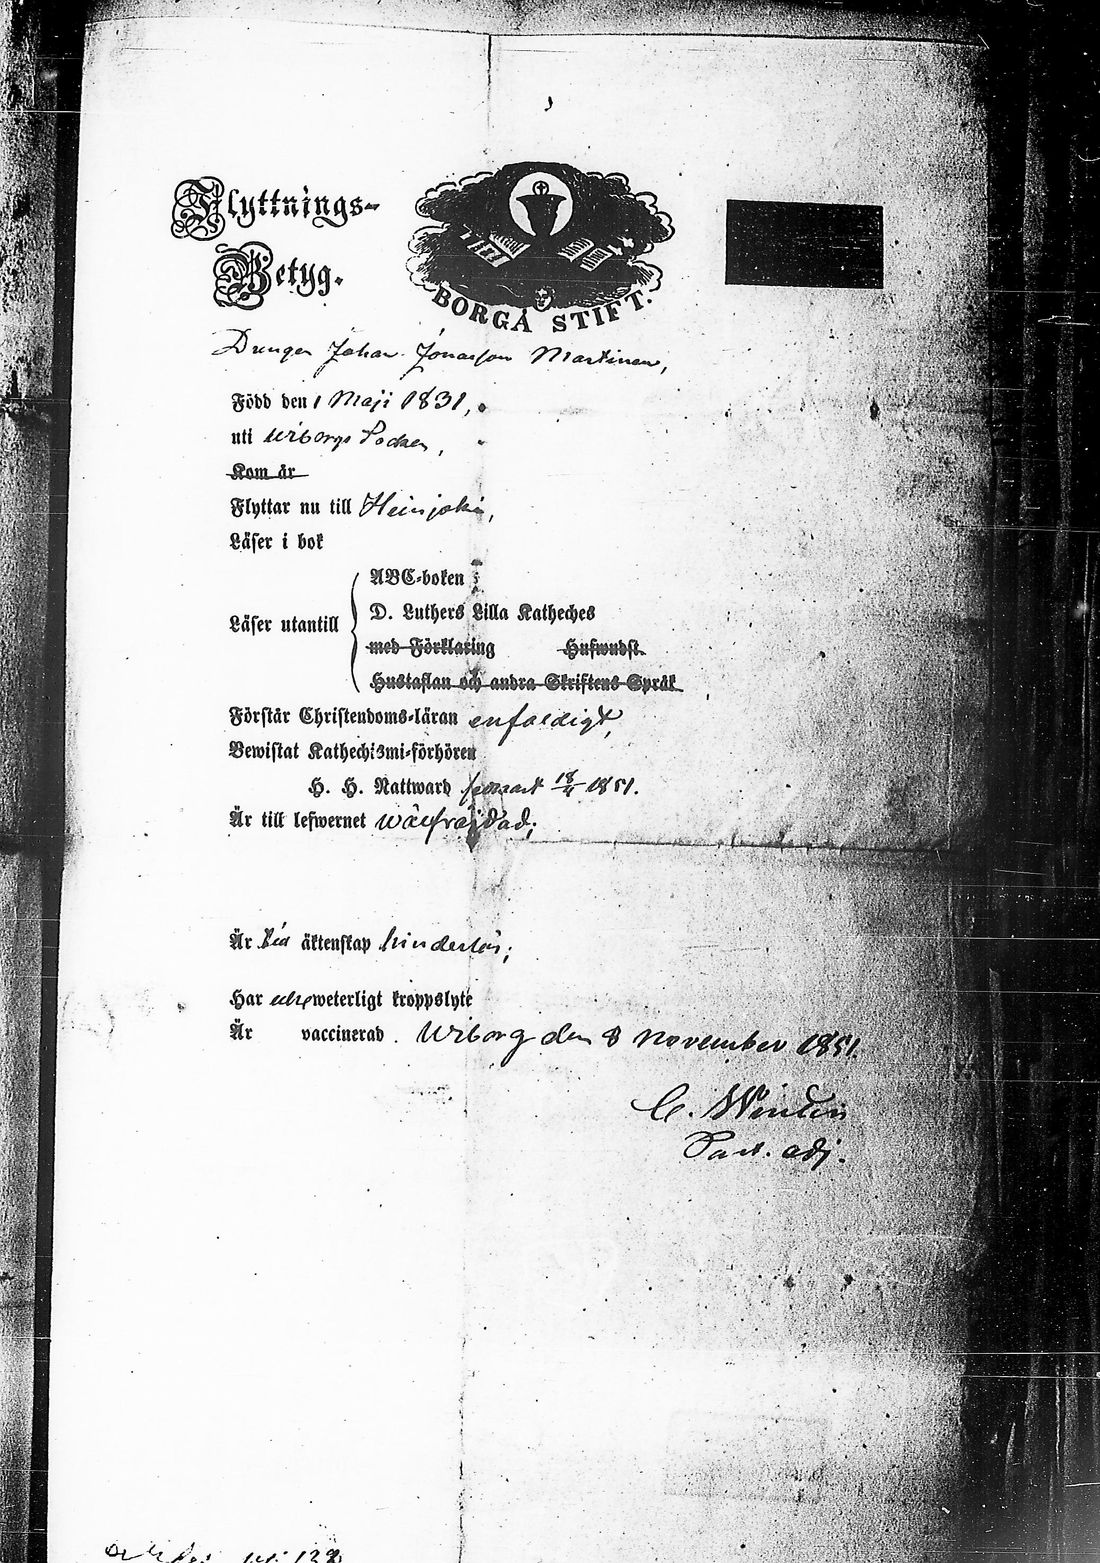 Flyttnings-
Betyg.
BORGÅ STIFT.
Drengen Johan Jönasson Martinen,
Född den 1 Maji 1831,
uti Wiborgs Socken,
Kom år
Flyttar nu till Heinjoki,
Läser i bok
ABC-boken
D. Luthers Lilla Katheches
Läser utantill
med Förklaring Huswudst.
Hustaflan och andra Skriftens Språk
Förstår Christendoms-läran enfaldigt,
Bewistat Kathechismi-förhören
H. H. Nattward senast 18/ 1851.
Är till lefwernet wälfräjdad;
Är äktenskap hinderlös;
Har weterligt kroppslyte
Är vaccinerad. Wiborg den 8 November 1851.
C.
Past. adj.